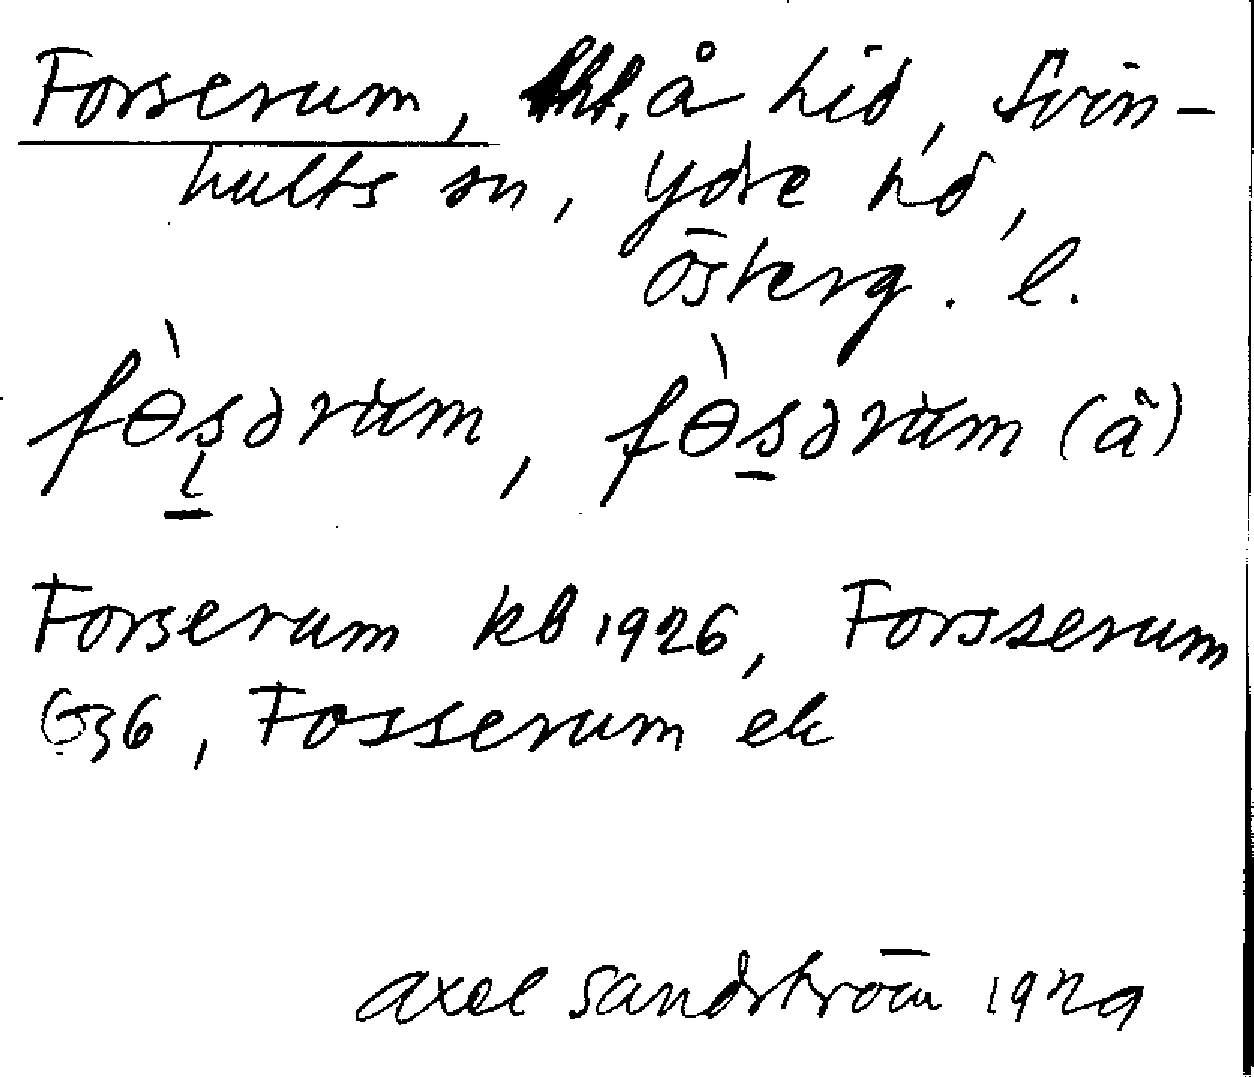 Forserum, å hid, Svin-
hults sn, Ydre hd,
Österg. l.
fɵ̀ṣərum, fɵ̀sərum (å)
Forserum kb 1926, Forsserum
G36, Fosserum ek
Axel Sandström 1929